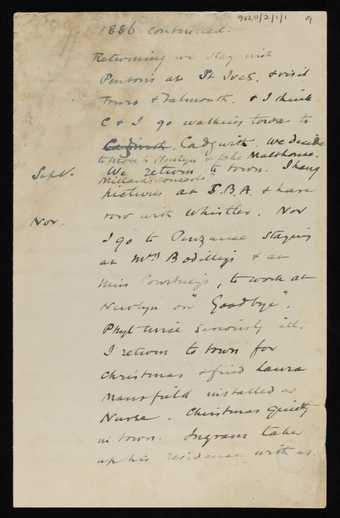 9020/2/1/1 9
1886 continued.
Returning we stay with
Pensons at St Ives, & visit
Truro & Falmouth. & I think
C & I go walking towards to
Cadgwith. Cadgwith. We decide
to move to & take Malthouse.
Sept. We return to town. I hang
pictures at S.B.A & have
row with Whistler. Nov
Nov. I go to Penzance staying
at Mrs Bodilly's & at
Miss Courtney's, to work at
Newlyn on "Goodbye".
Phyl seriously ill.
I return to town for
Christmas & find Laura
Mansfield installed as
Nurse. Christmas quietly
in town. Ingram takes
up his residence with us.